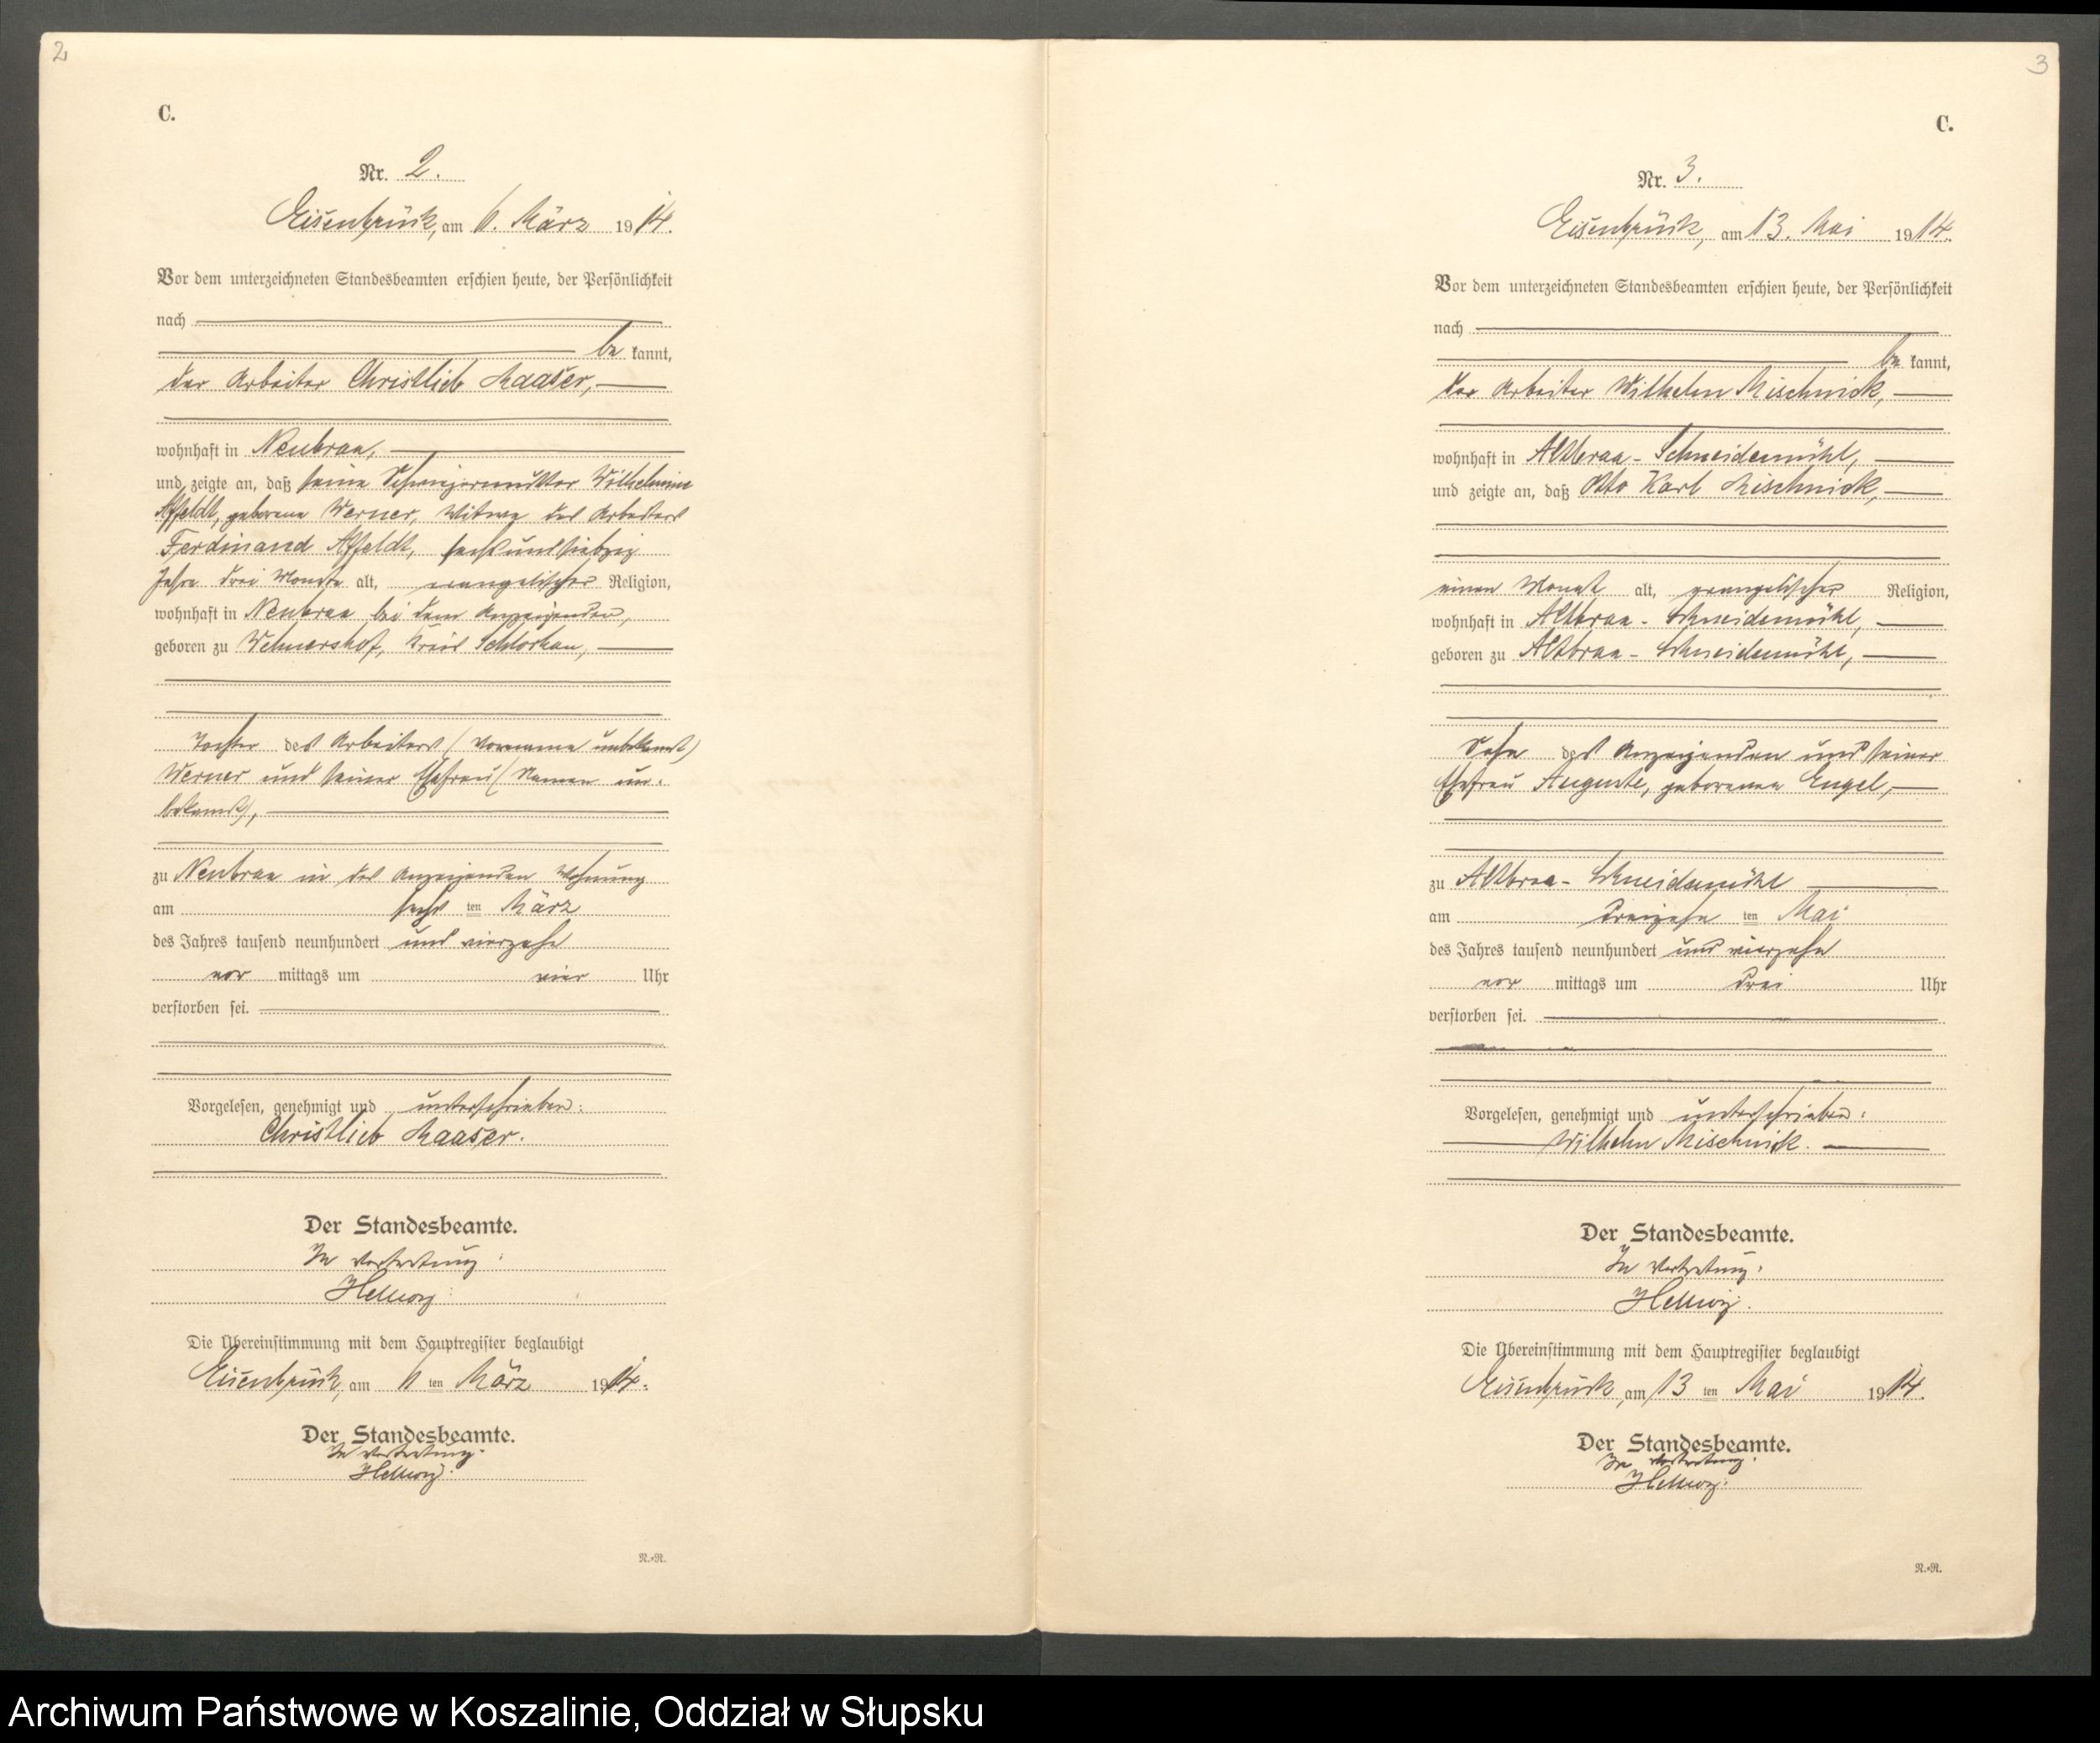 2
C.
Nr. 2.
Eisenbrück, am 6. März 1914.
Vor dem unterzeichneten Standesbeamten erschien heute, der Persönlichkeit
nach
be kannt,
der Arbeiter Christlieb Maaser,
wohnhaft in Neubraa,
und zeigte an, daß seine Schwiegermutter Wilhelmine
Affeldt, geborene Werner, Witwe des Arbeiters
Ferdinand Affeldt, sechsundsiebzig
Jahre drei Monate alt, evangelischer Religion,
wohnhaft in Neubraa bei dem Anzeigenden,
geboren zu Wehnershof, Kreis Schlochau,
Tochter des Arbeiters (Vorname unbekannt)
Werner und seiner Ehefrau (Namen un-
bekannt),
zu Neubraa in des Anzeigenden Wohnung
am sechs ten März
des Jahres tausend neunhundert und vierzehn
vor mittags um vier Uhr
verstorben sei.
Vorgelesen, genehmigt und unterschrieben:
Christlieb Maaser.
Der Standesbeamte.
In Vertretung:
Hellwig.
Die Übereinstimmung mit dem Hauptregister beglaubigt
Eisenbrück, am 6 ten März 1914.
Der Standesbeamte.
In Vertretung.
Hellwig.
N.-R.
3
C.
Nr. 3.
Eisenbrück, am 13. Mai 1914.
Vor dem unterzeichneten Standesbeamten erschien heute, der Persönlichkeit
nach
be kannt,
der Arbeiter Wilhelm Mischnick,
wohnhaft in Altbraa-Schneidemühl,
und zeigte an, daß Otto Karl Mischnick,
einen Monat alt, evangelischer Religion,
wohnhaft in Altbraa-Schneidemühl,
geboren zu Altbraa-Schneidemühl,
Sohn des Anzeigenden und seiner
Ehefrau Auguste, geborenen Engel,
zu Altbraa-Schneidemühl
am dreizehn ten Mai
des Jahres tausend neunhundert und vierzehn
vor mittags um drei Uhr
verstorben sei.
Vorgelesen, genehmigt und unterschrieben:
Wilhelm Mischnick.
Der Standesbeamte.
In Vertretung:
Hellwig.
Die Übereinstimmung mit dem Hauptregister beglaubigt
Eisenbrück, am 13 ten Mai 1914.
Der Standesbeamte.
In Vertretung.
Hellwig.
N.-R.
Archiwum Państwowe w Koszalinie, Oddział w Słupsku